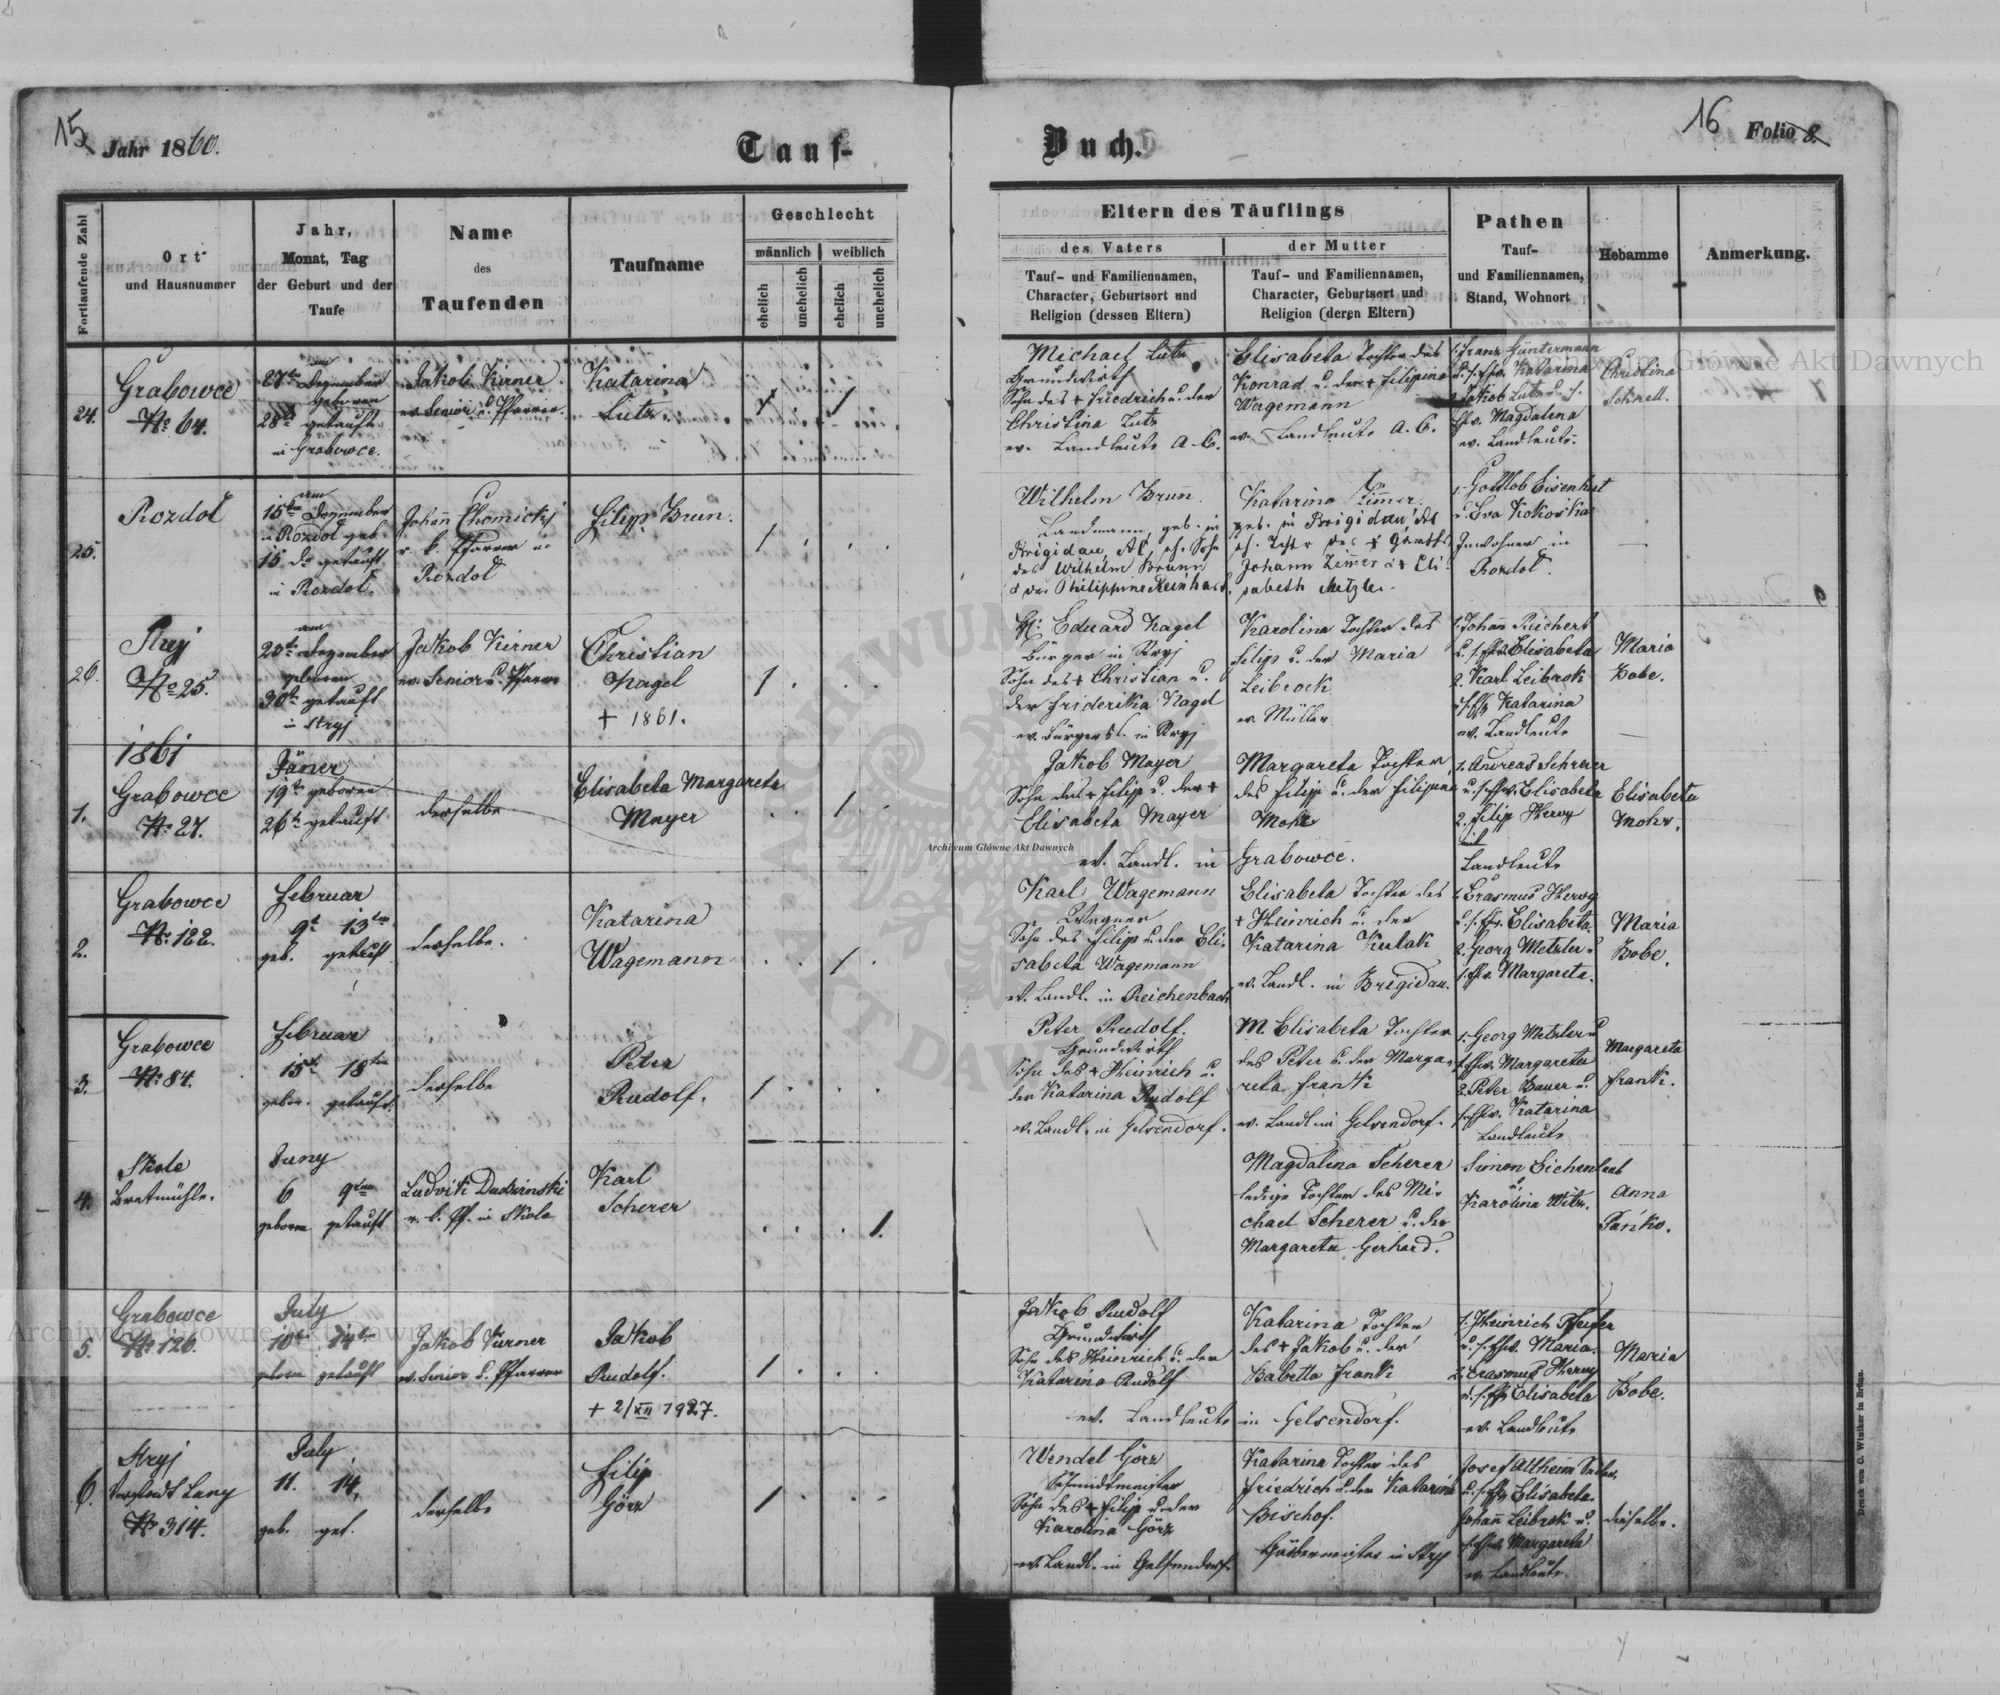 15
Jahr 1860.
Tauf-
Buch.
16
Folio 8.
Fortlaufende Zahl
Ort
und Hausnummer
Jahr,
Monat, Tag
der Geburt und der
Taufe
Name
des
Taufenden
Taufname
Geschlecht
männlich
weiblich
ehelich
unehelich
ehelich
unehelich
Eltern des Täuflings
des Vaters
Tauf- und Familiennamen,
Character, Geburtsort und
Religion (dessen Eltern)
der Mutter
Tauf- und Familiennamen,
Character, Geburtsort und
Religion (deren Eltern)
Pathen
Tauf-
und Familiennamen,
Stand, Wohnort
Hebamme
Anmerkung.
24.
Grabowce
No 64.
am
27ten Dezember
geboren
28t getauft
in Grabowce.
Jakob Kirner
ev. Senior u. Pfarrer.
Katarina
Lutz.
Michael Lutz
Grundwirth
Sohn des + Friedrich u. der
Christina Lutz
ev. Landleute A. C.
Elisabeta Tochter des
Konrad u. der + Filippina
Wagemann
ev. Landleute A. C.
1. Franz Güntermann
u. s. Ehw. Katarina
2. Jakob Lutz u. s.
Ehw. Magdalena
ev. Landleute.
Christina
Schnell.
25.
Rozdoł
am
15ten Dezember
in Rozdoł geb.
15 do getauft
in Rozdoł.
Johann Chomicki
r. k. Pfarrer in
Rozdoł
Filipp Brun.
Wilhelm Brunn.
Landmann, geb. in
Brigidau, AC, eh. Sohn
des Wilhelm Brunn
u der Philippine Reinhard.
Katarina Zimmer
geb. in Brigidau, des
Johann Zimmer u + Eli-
sabeth Metzler.
1. Gottlob Eisenhut
u. Eva Kokoska
Inwohner in
Rozdoł.
26.
Stryj
No 25.
am
23ten Dezember
geboren
30t getauft
in Stryj
Jakob Kirner
ev. Senior u. Pfarrer
Christian
Nagel
+ 1861.
Eduard Nagel
Bürger in Stryj
Sohn des + Christian u.
der Friderika Nagel
ev. Bürgersl. in Stryj
Karolina Tochter des
Filip u. der Maria
Leibrock
ev. Müller
1. Johann Reichert
u. s. Ehw. Elisabeta
2. Karl Leibrok
u. s. Ehw Katarina
ev. Landleute
Maria
Bobe.
1861
1.
Grabowce
No 27.
Jäner
19t geboren
26t getauft
derselbe
Elisabeta Margareta
Mayer
Jakob Mayer
Sohn des + Filipp u. der +
Elisabeta Mayer
ev. Landl. in Grabowce.
Margareta Tochter
des Filipp u. der Filippina
Mohr
1. Andreas Scherer
u. s. Ehw. Elisabeta
2. Filip Herog
Landleute
Elisabeta
Mohr.
2.
Grabowce
No 122.
Februar
9t 13ten
geb. getauft
derselbe.
Katarina
Wagemann
Karl Wagemann
Wagner
Sohn des Filipp u. der Eli-
sabeta Wagemann
ev. Landl. in Reichenbach
Elisabeta Tochter des
+ Heinrich u. der
Katarina Kulak
ev. Landl. in Brigidau.
1. Erasmus Herog
u. s. Ehw. Elisabeta.
2. Georg Metzler u
s. Ehw. Margareta.
Maria
Bobe.
3.
Grabowce
No 84.
Februar
15t 18ten
gebor. getauft.
derselbe
Peter
Rudolf.
Peter Rudolf.
Grundwirth
Sohn des + Heinrich u.
der Katarina Rudolf
ev. Landl. in Gelsendorf.
M. Elisabeta Tochter
des Peter u. der Marga-
reta Frank
ev. Landl. in Gelsendorf.
1. Georg Metzler u
s. Ehw. Margareta
2. Peter Bauer u.
s. Ehw. Katarina
Landleute
Margareta
Frank.
4.
Skole
Bretmühle.
Juny
6 9ten
geboren getauft
Ludvik Dudzinski
r. k. Pf. in Skole
Karl
Scherer
Magdalena Scherer
ledige Tochter des Mi-
chael Scherer u. der
Margareta Gerhard.
Simon Eichenlaub
u.
Karolina Witz.
Anna
Pańko.
5.
Grabowce
No 126.
July
10t 14ten
geboren getauft
Jakob Kirner
ev. Senior u. Pfarrer
Jakob
Rudolf.
+ 2/XII 1927.
Jakob Rudolf
Grundwirth
Sohn des Heinrich u. der
Katarina Rudolf
ev. Landleute in Gelsendorf.
Katarina Tochter
des + Jakob u. der
Babetta Frank
1. Heinrich Pfeifer
u. s. Ehw. Maria.
2. Erasmus Herog
u. s. Ehw Elisabeta
ev. Landleute
Maria
Bobe.
6.
Stryj
Vorstadt Lany
No 314.
July
11. 14.
geb. get.
derselbe
Filip
Görz
Wendel Görz
Schmidtmeister
Sohn des + Filip u. der
Karolina Görz
ev. Landl. in Gelsendorf.
Katarina Tochter des
Friedrich u. der Katarina
Bischof.
in Stryj
Josef Altheim
u. s. Ehw Elisabeta
Johann Leibrok u.
s. Ehw. Margareta
ev. Landleute.
dieselbe.
Druck von C. Winiker in Brünn.
Archiwum Główne Akt Dawnych
Archiwum Główne Akt Dawnych
Archiwum Główne Akt Dawnych
ARCHIWUM GŁÓWNE AKT DAWNYCH